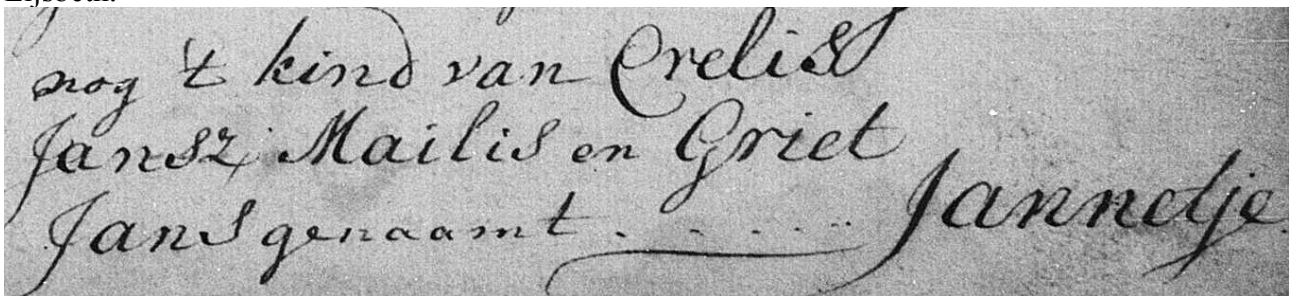 nog 't kind van Crelis
Jansz Mailis en Griet
Jans genaamt . . . . . Jannetje